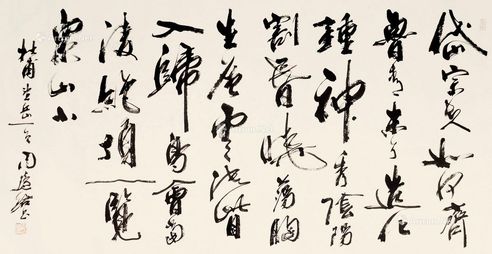 岱宗夫如何齊
魯青未了造化
鍾神秀陰陽
割昏曉蕩胸
生層雲決眥
入歸鳥會當
凌絕頂一覽
衆山小
杜甫望岳一首 周慧珺書